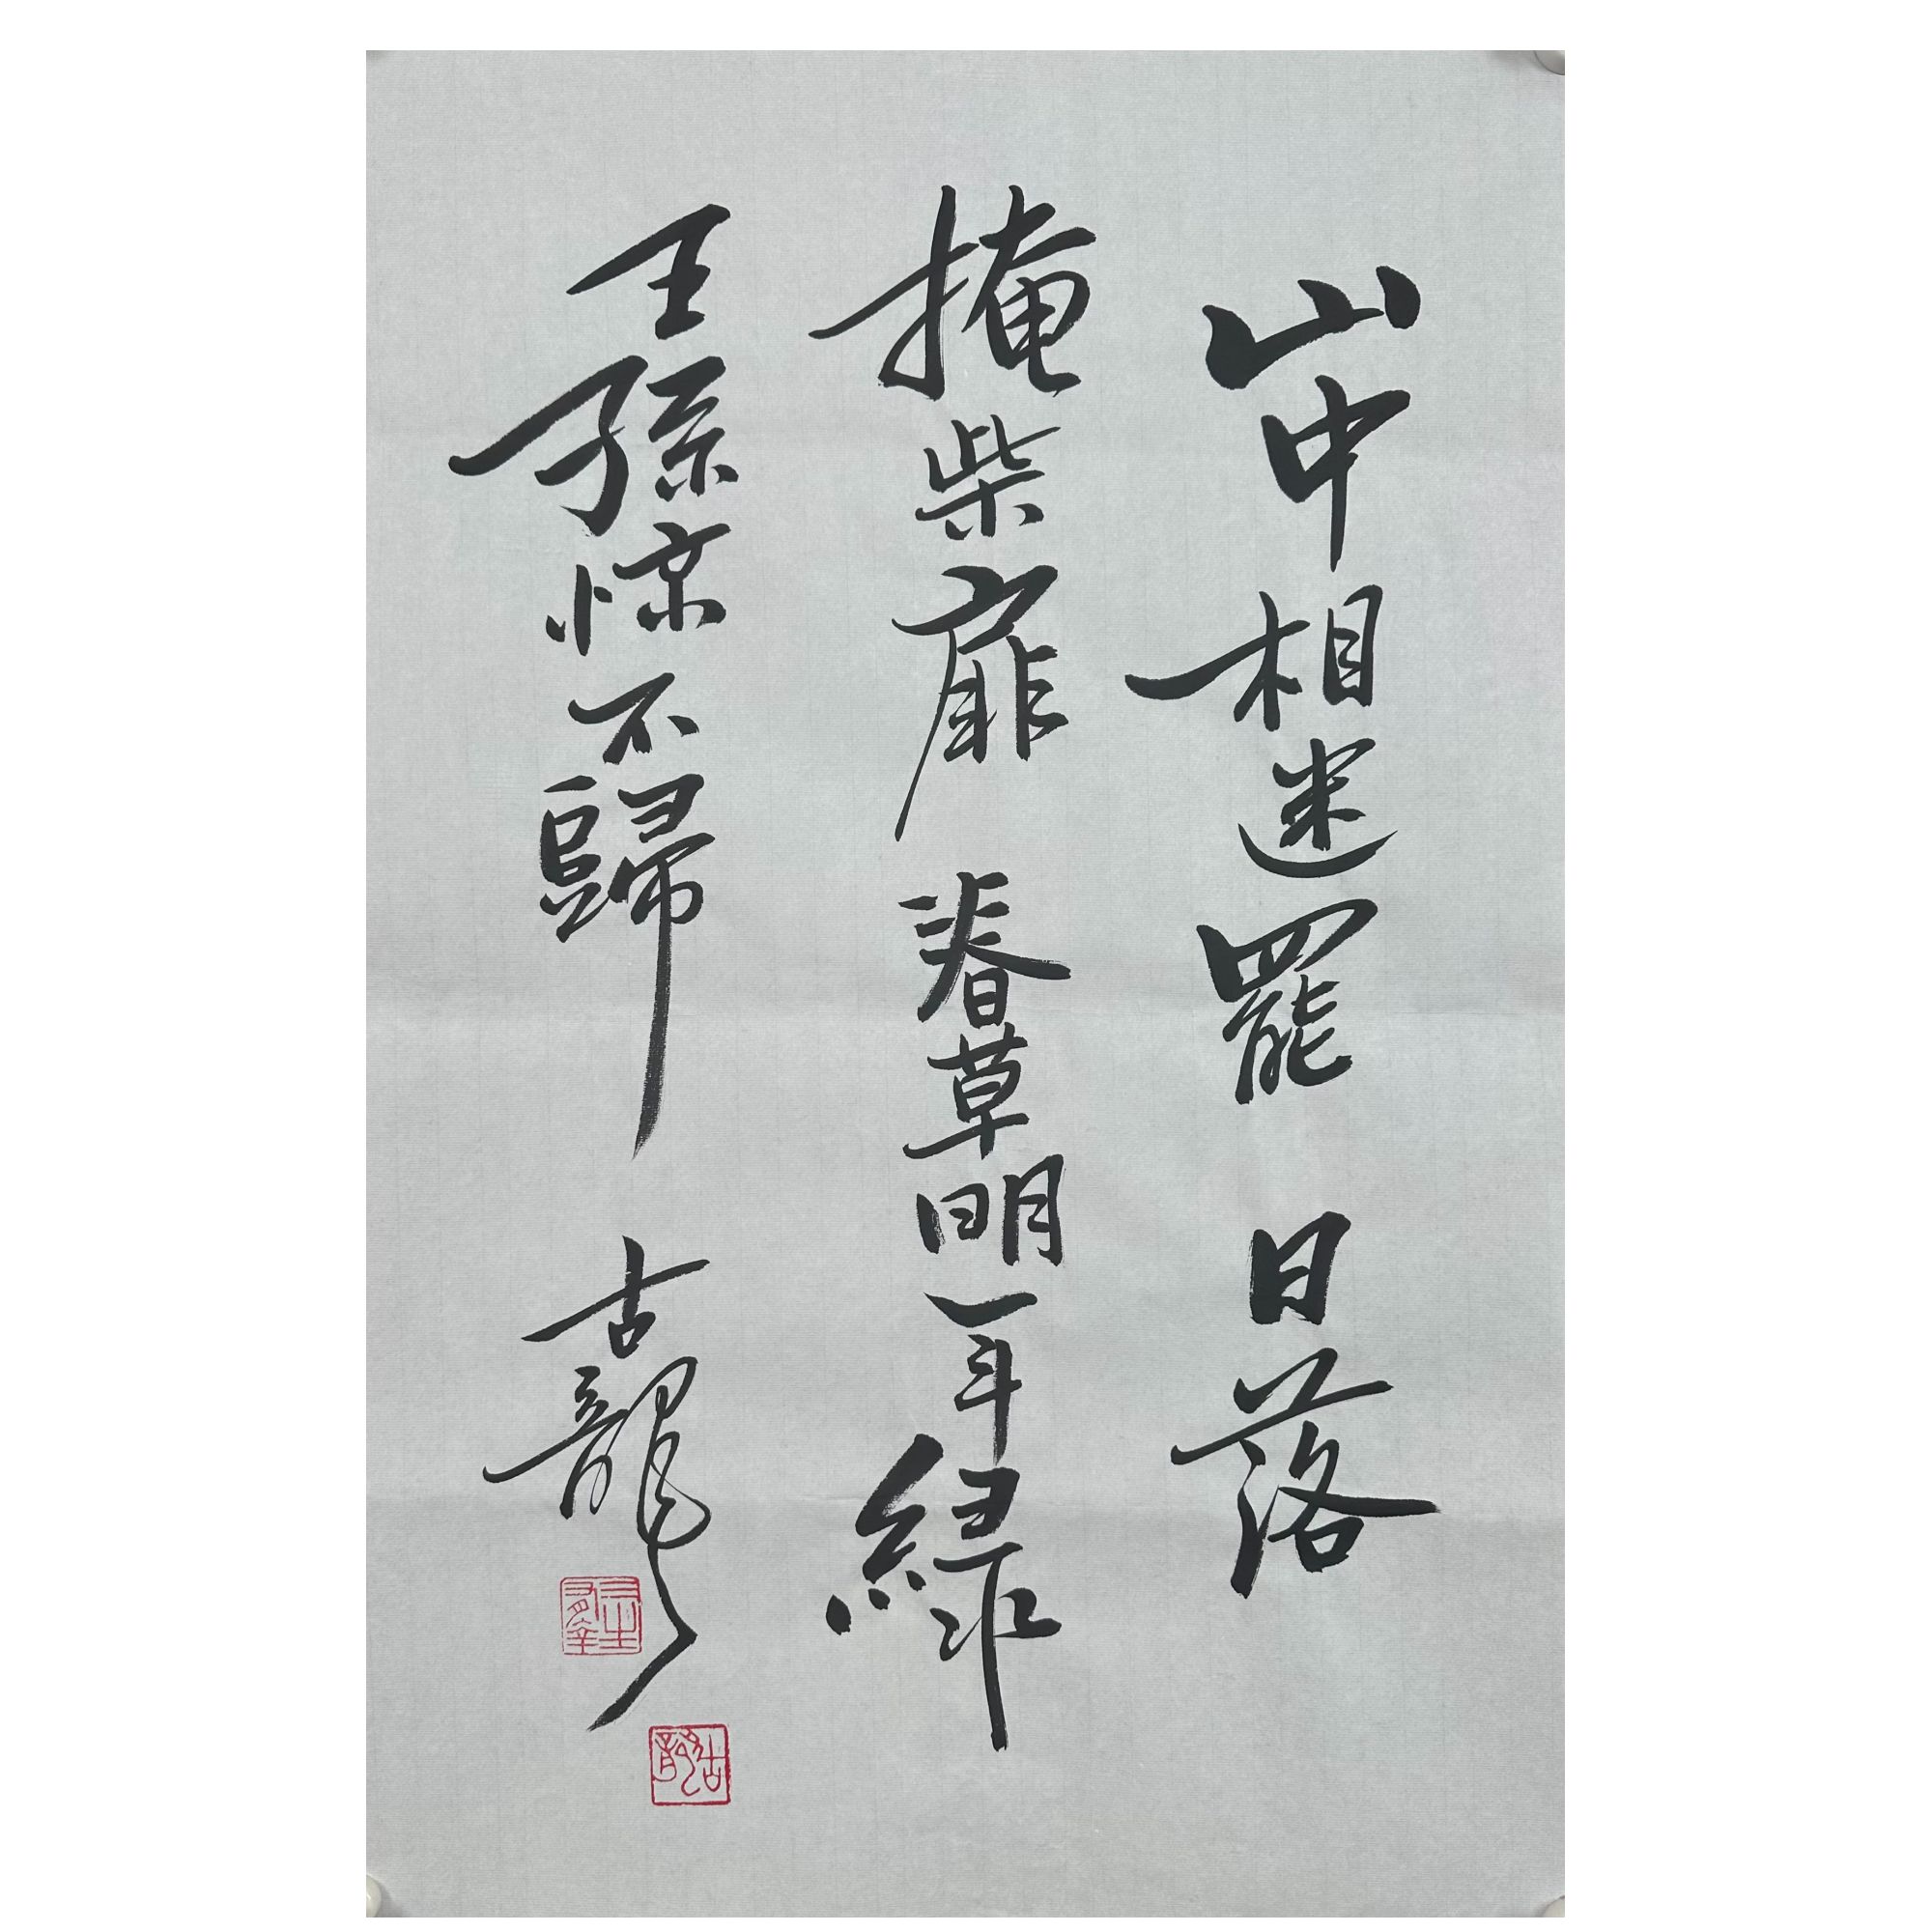 山中相送罷 日落
掩柴扉 春草明年綠
王孫惊不歸 古龍
古龍